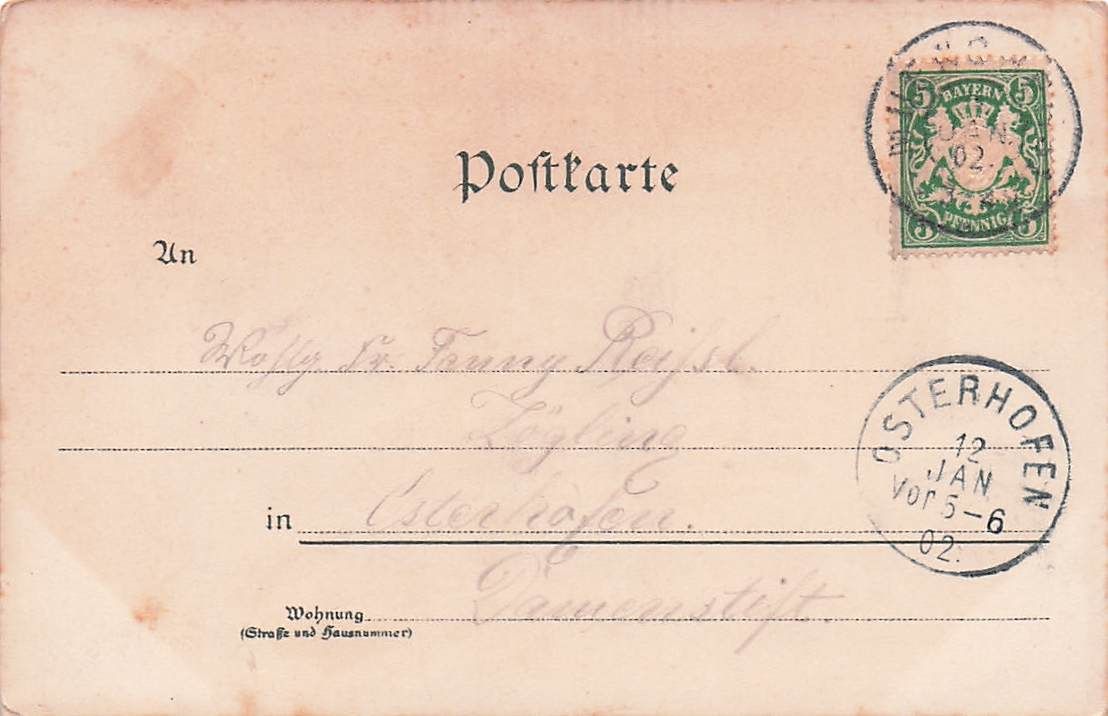 BAYERN
5 5
JAN.
02.
5 PFENNIG 5
Postkarte
An
Wohlg. Fr. Fanny
Zögling
OSTERHOFEN
12
JAN
Vor 5-6
02.
in Osterhofen.
Damenstift.
Wohnung
(Straße und Hausnummer)